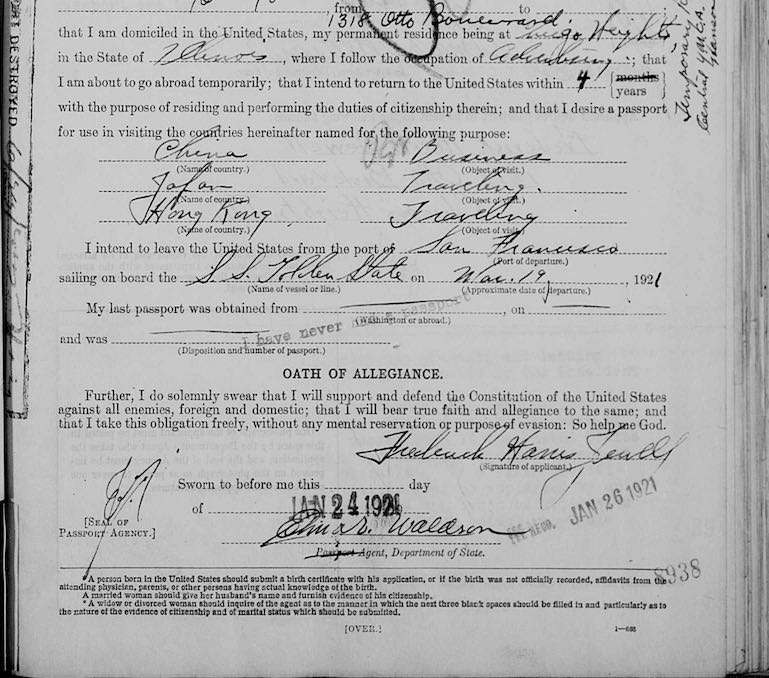 from to
1318 Otto Boulevard.
that I am domiciled in the United States, my permanent residence being at Heights
in the State of Illinois, where I follow the occupation of Advertising; that
I am about to go abroad temporarily; that I intend to return to the United States within 4 {months
years}
with the purpose of residing and performing the duties of citizenship therein; and that I desire a passport
for use in visiting the countries hereinafter named for the following purpose:
China Business
(Name of country.) (Object of visit.)
Japan Traveling.
(Name of country.) (Object of visit.)
Hong Kong, Traveling
(Name of country.) (Object of visit.)
I intend to leave the United States from the port of San Francisco
(Port of departure.)
sailing on board the S. S. State on Mar. 19, 1921
(Name of vessel or line.) (Approximate date of departure.)
My last passport was obtained from , on
(Washington or abroad.)
I have never had a passport
and was
(Disposition and number of passport.)
OATH OF ALLEGIANCE.
Further, I do solemnly swear that I will support and defend the Constitution of the United States
against all enemies, foreign and domestic; that I will bear true faith and allegiance to the same; and
that I take this obligation freely, without any mental reservation or purpose of evasion: So help me God.
Frederick Harris
(Signature of applicant.)
Sworn to before me this day
of JAN 24 1921
JAN 26 1921
[SEAL OF
PASSPORT AGENCY.]
Waldron
Passport Agent, Department of State.
8938
A person born in the United States should submit a birth certificate with his application, or if the birth was not officially recorded, affidavits from the
attending physician, parents, or other persons having actual knowledge of the birth.
A married woman should give her husband's name and furnish evidence of his citizenship.
* A widow or divorced woman should inquire of the agent as to the manner in which the next three blank spaces should be filled in and particularly as to
the nature of the evidence of citizenship and of marital status which should be submitted.
[OVER.] 1—663
DESTROYED
Temporary
Central